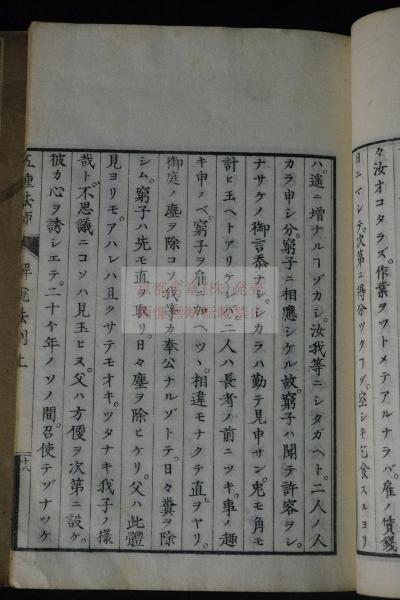 々。汝オコタラズ。作業ヲツトメテアルナラバ。雇ノ價錢
日ニマシテ。次第ニ得分ツクコゾ。空シキ乞食スルヨリ
ハ。遙ニ增ナルコゾカシ。汝我等ニシタガヘト。二人ノ人
カラ申シ分。窮子ニ相應シケル故。窮子ハ聞テ許容ヲシ。
ナサケノ御言忝ナシ。シカラハ勤テ見申サン。兎モ角モ
計ヒ玉ヘトアリケレハ。二人ハ長者ノ前ニツキ。事ノ趣
キ申ノベ。窮子ヲ雇ニ加ヘツヽ。相違モナクテ直ヲヤリ。
御庭ノ塵ヲ除コソ。我等カ奉公ナルゾトテ。日々糞ヲ除
シム。窮子ハ先モ直ヲ取リ。日々塵ヲ除ヒケリ。父ハ此體
見ヨリモ。アハレハ且クサテモオキ。ツタナキ我子ノ樣
哉ト。不思議ニコソハ見玉ヒヌ。父ハ方便ヲ次第ニ設ケ。
彼カ心ヲ誘シエテ。二十个年ノソノ間。召使テゾナツケ
五種法師 解說法則上 十八
京都 書堂(株)発売
画像無断転載禁止